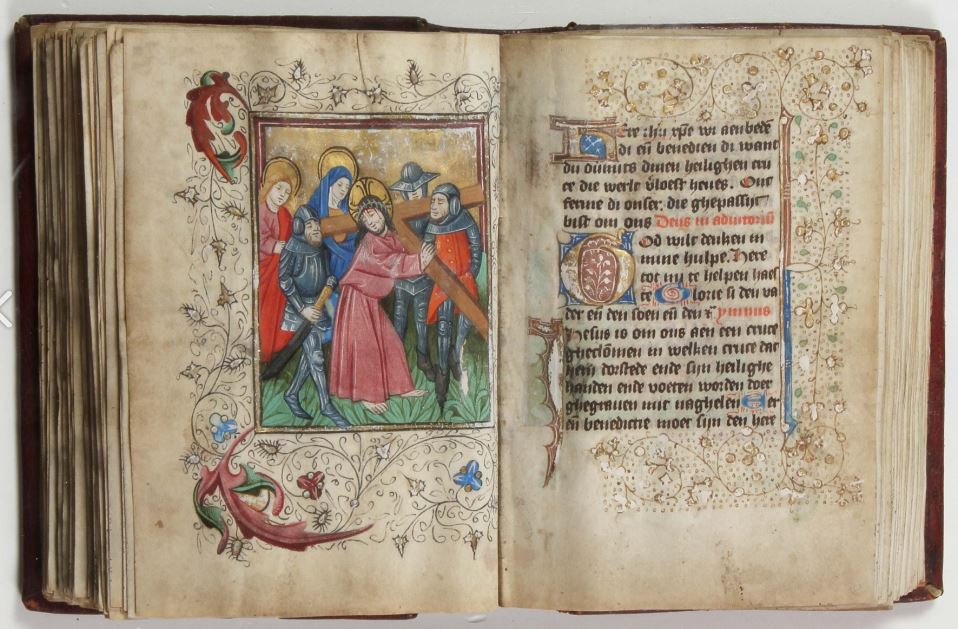 Ere ihu xpē wi aenbedē
di eñ benedien di want
du duuits dinen heilighen cru
ce die werlt v̄loest heues. Ont
ferme di onser, die ghepassijt
bist om ons Deus in adiutoriū
God wilt denken in
mine hulpe. Here
toe mi te helpen haes
te Glorie si den va
der eñ den soen eñ den ymnus
Jhesus is om ons aen een cruce
gheclōmen in welken cruce dat
hem dorstede ende sijn heilighe
handen ende voeten worden doer
ghegrauen mit naghelen Eer
eñ benedictie moet sijn den here